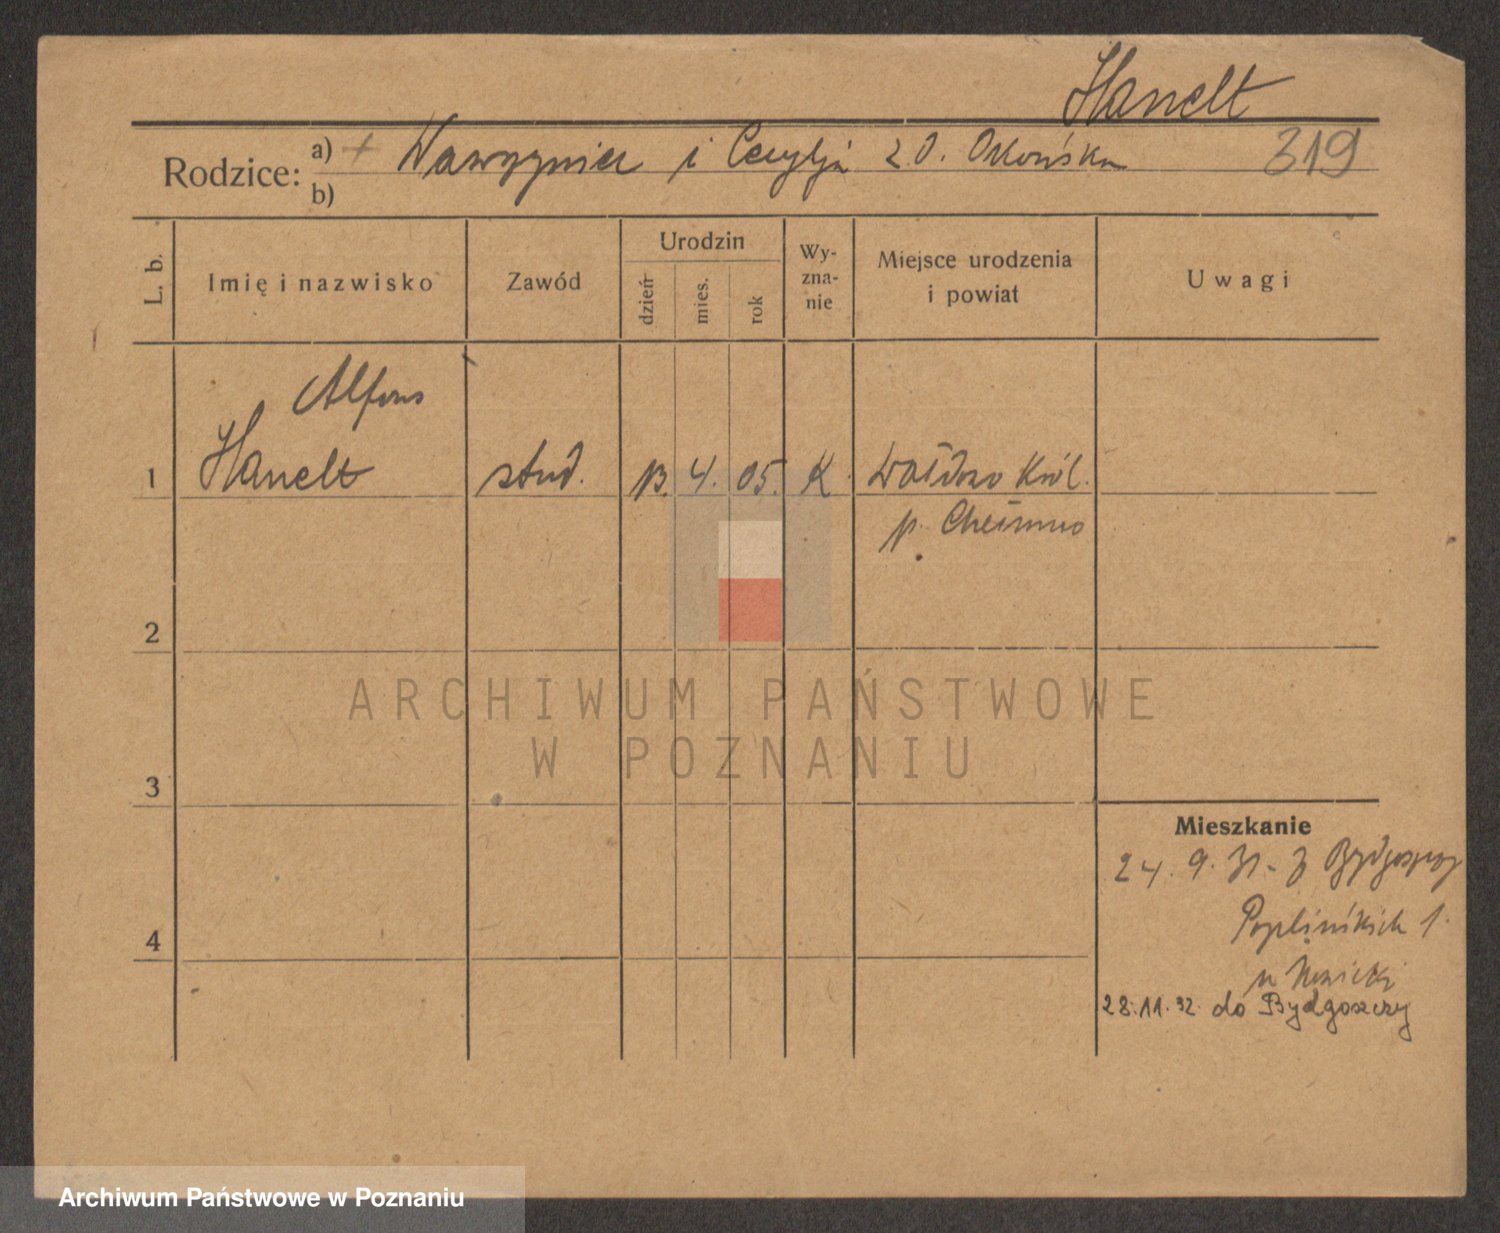 Hanelt
Rodzice: a) + Wawrzyniec i Cecylja z d. Okońska 319
b)
L. b. Imię i nazwisko Zawód Urodzin dzień mies. rok Wy-zna-nie Miejsce urodzenia i powiat Uwagi
Alfons
1 Hanelt stud. 13. 4. 05. K. Wałdowo Król.
p. Chełmno
2
ARCHIWUM PAŃSTWOWE
W POZNANIU
3
Mieszkanie
24. 9. 31 - z Bydgoszczy
4 Poplińskich 1.
u Nowicki
28.11.32. do Bydgoszczy
Archiwum Państwowe w Poznaniu